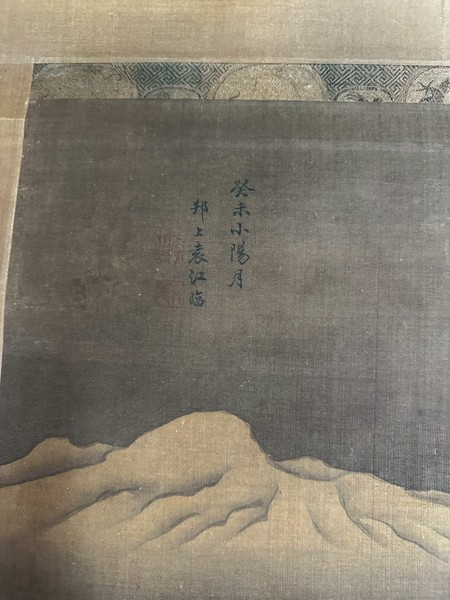 癸未小陽月
邗上袁江臨